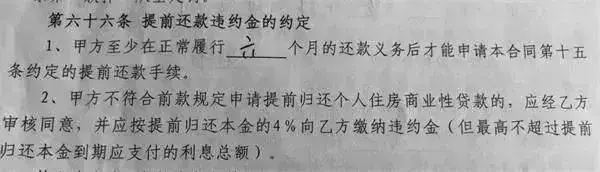 第六十六条 提前还款违约金的约定
1、甲方至少在正常履行 六 个月的还款义务后才能申请本合同第十五
条约定的提前还款手续。
2、甲方不符合前款规定申请提前归还个人住房商业性贷款的，应经乙方
审核同意，并应按提前归还本金的4%向乙方缴纳违约金（但最高不超过提前
归还本金到期应支付的利息总额）。